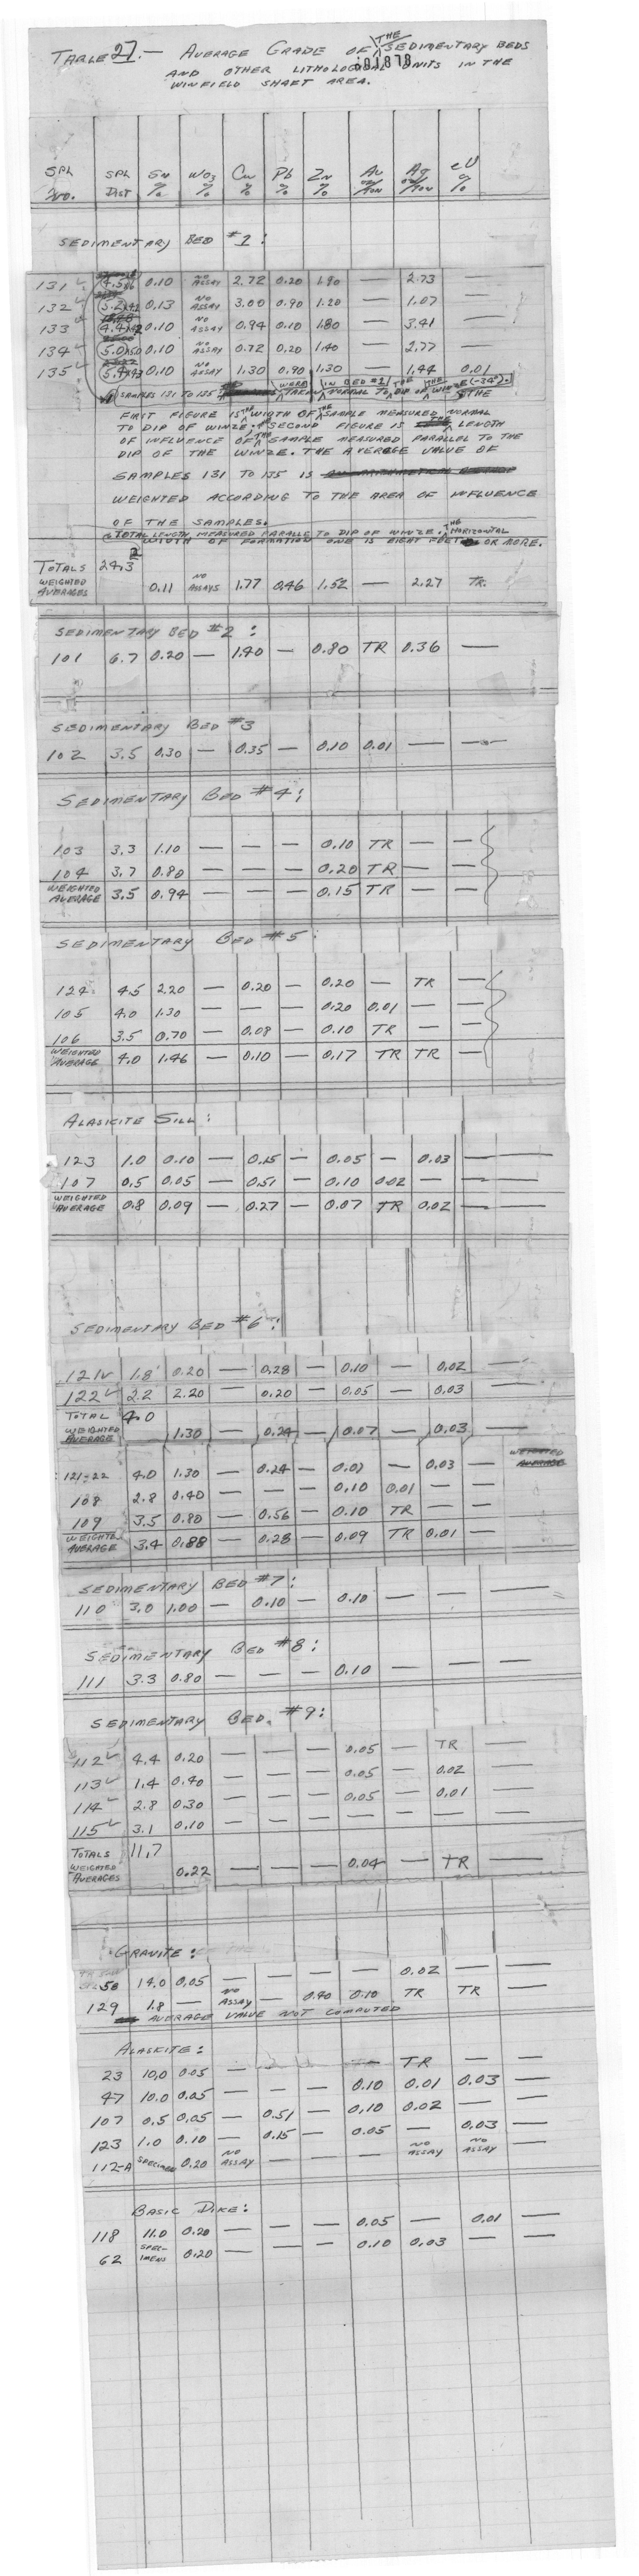 TABLE 27. — AVERAGE GRADE OF THE SEDIMENTARY BEDS
AND OTHER LITHOLOGICAL UNITS IN THE
WINFIELD SHAFT AREA.
SPL NO. SPL DIST Sn % WO3 % Cu % Pb % Zn % Au oz/TON Ag oz/TON eU %
SEDIMENTARY BED #1:
131 4.5 0.10 NO ASSAY 2.72 0.20 1.90 — 2.73
132 5.2 0.13 NO ASSAY 3.00 0.90 1.20 — 1.07
133 4.4 0.10 NO ASSAY 0.94 0.10 1.80 — 3.41
134 5.0 0.10 NO ASSAY 0.72 0.20 1.40 — 2.77
135 5.4 0.10 NO ASSAY 1.30 0.90 1.30 — 1.44 0.01
SAMPLES 131 TO 135 WERE TAKEN IN BED #1 NORMAL TO THE DIP OF THE WINZE (-34°). THE
FIRST FIGURE IS THE WIDTH OF THE SAMPLE MEASURED NORMAL
TO DIP OF WINZE. SECOND FIGURE IS THE LENGTH
OF INFLUENCE OF THE SAMPLE MEASURED PARALLEL TO THE
DIP OF THE WINZE. THE AVERAGE VALUE OF
SAMPLES 131 TO 135 IS
WEIGHTED ACCORDING TO THE AREA OF INFLUENCE
OF THE SAMPLES.
TOTAL LENGTH MEASURED PARALLE TO DIP OF WINZE. THE HORIZONTAL
WIDTH OF FORMATION ONE IS EIGHT FEET OR MORE.
TOTALS 24.3
WEIGHTED AVERAGES 0.11 NO ASSAYS 1.77 0.46 1.52 — 2.27 TR.
SEDIMENTARY BED #2:
101 6.7 0.20 — 1.40 — 0.80 TR 0.36 —
SEDIMENTARY BED #3
102 3.5 0.30 — 0.35 — 0.10 0.01 — —
SEDIMENTARY BED #4:
103 3.3 1.10 — — — 0.10 TR — —
104 3.7 0.80 — — — 0.20 TR — —
WEIGHTED AVERAGE 3.5 0.94 — — — 0.15 TR — —
SEDIMENTARY BED #5:
124 4.5 2.20 — 0.20 — 0.20 — TR —
105 4.0 1.30 — — — 0.20 0.01 — —
106 3.5 0.70 — 0.08 — 0.10 TR — —
WEIGHTED AVERAGE 4.0 1.46 — 0.10 — 0.17 TR TR —
ALASKITE SILL:
123 1.0 0.10 — 0.15 — 0.05 — 0.03 — —
107 0.5 0.05 — 0.51 — 0.10 0.02 — — —
WEIGHTED AVERAGE 0.8 0.09 — 0.27 — 0.07 TR 0.02 — —
SEDIMENTARY BED #6:
121 1.8' 0.20 — 0.28 — 0.10 — 0.02 —
122 2.2 2.20 — 0.20 — 0.05 — 0.03 —
TOTAL 4.0
WEIGHTED AVERAGE 1.30 — 0.24 — 0.07 — 0.03 —
121-22 4.0 1.30 — 0.24 — 0.07 — 0.03 —
108 2.8 0.40 — — — 0.10 0.01 — —
109 3.5 0.80 — 0.56 — 0.10 TR — —
WEIGHTE AVERAGE 3.4 0.88 — 0.28 — 0.09 TR 0.01 —
SEDIMENTARY BED #7:
110 3.0 1.00 — 0.10 — 0.10 — — —
SEDIMENTARY BED #8:
111 3.3 0.80 — — — 0.10 — — —
SEDIMENTARY BED. #9:
112 4.4 0.20 — — — 0.05 — TR —
113 1.4 0.40 — — — 0.05 — 0.02 —
114 2.8 0.30 — — — 0.05 — 0.01 —
115 3.1 0.10 — — — — — — —
TOTALS 11.7
WEIGHTED AVERAGES 0.22 — — — 0.04 — TR —
GRANITE:
58 14.0 0.05 — — — — 0.02 — —
129 1.8 — NO ASSAY — 0.40 0.10 TR TR —
AVERAGE VALUE NOT COMPUTED
ALASKITE:
23 10.0 0.05 — — TR — —
47 10.0 0.05 — — — 0.10 0.01 0.03 —
107 0.5 0.05 — 0.51 — 0.10 0.02 — —
123 1.0 0.10 — 0.15 — 0.05 — 0.03 —
112-A SPECIMEN 0.20 NO ASSAY — — — NO ASSAY NO ASSAY —
BASIC DIKE:
118 11.0 0.20 — — — 0.05 — 0.01 —
62 SPEC-IMENS 0.20 — — — 0.10 0.03 — —